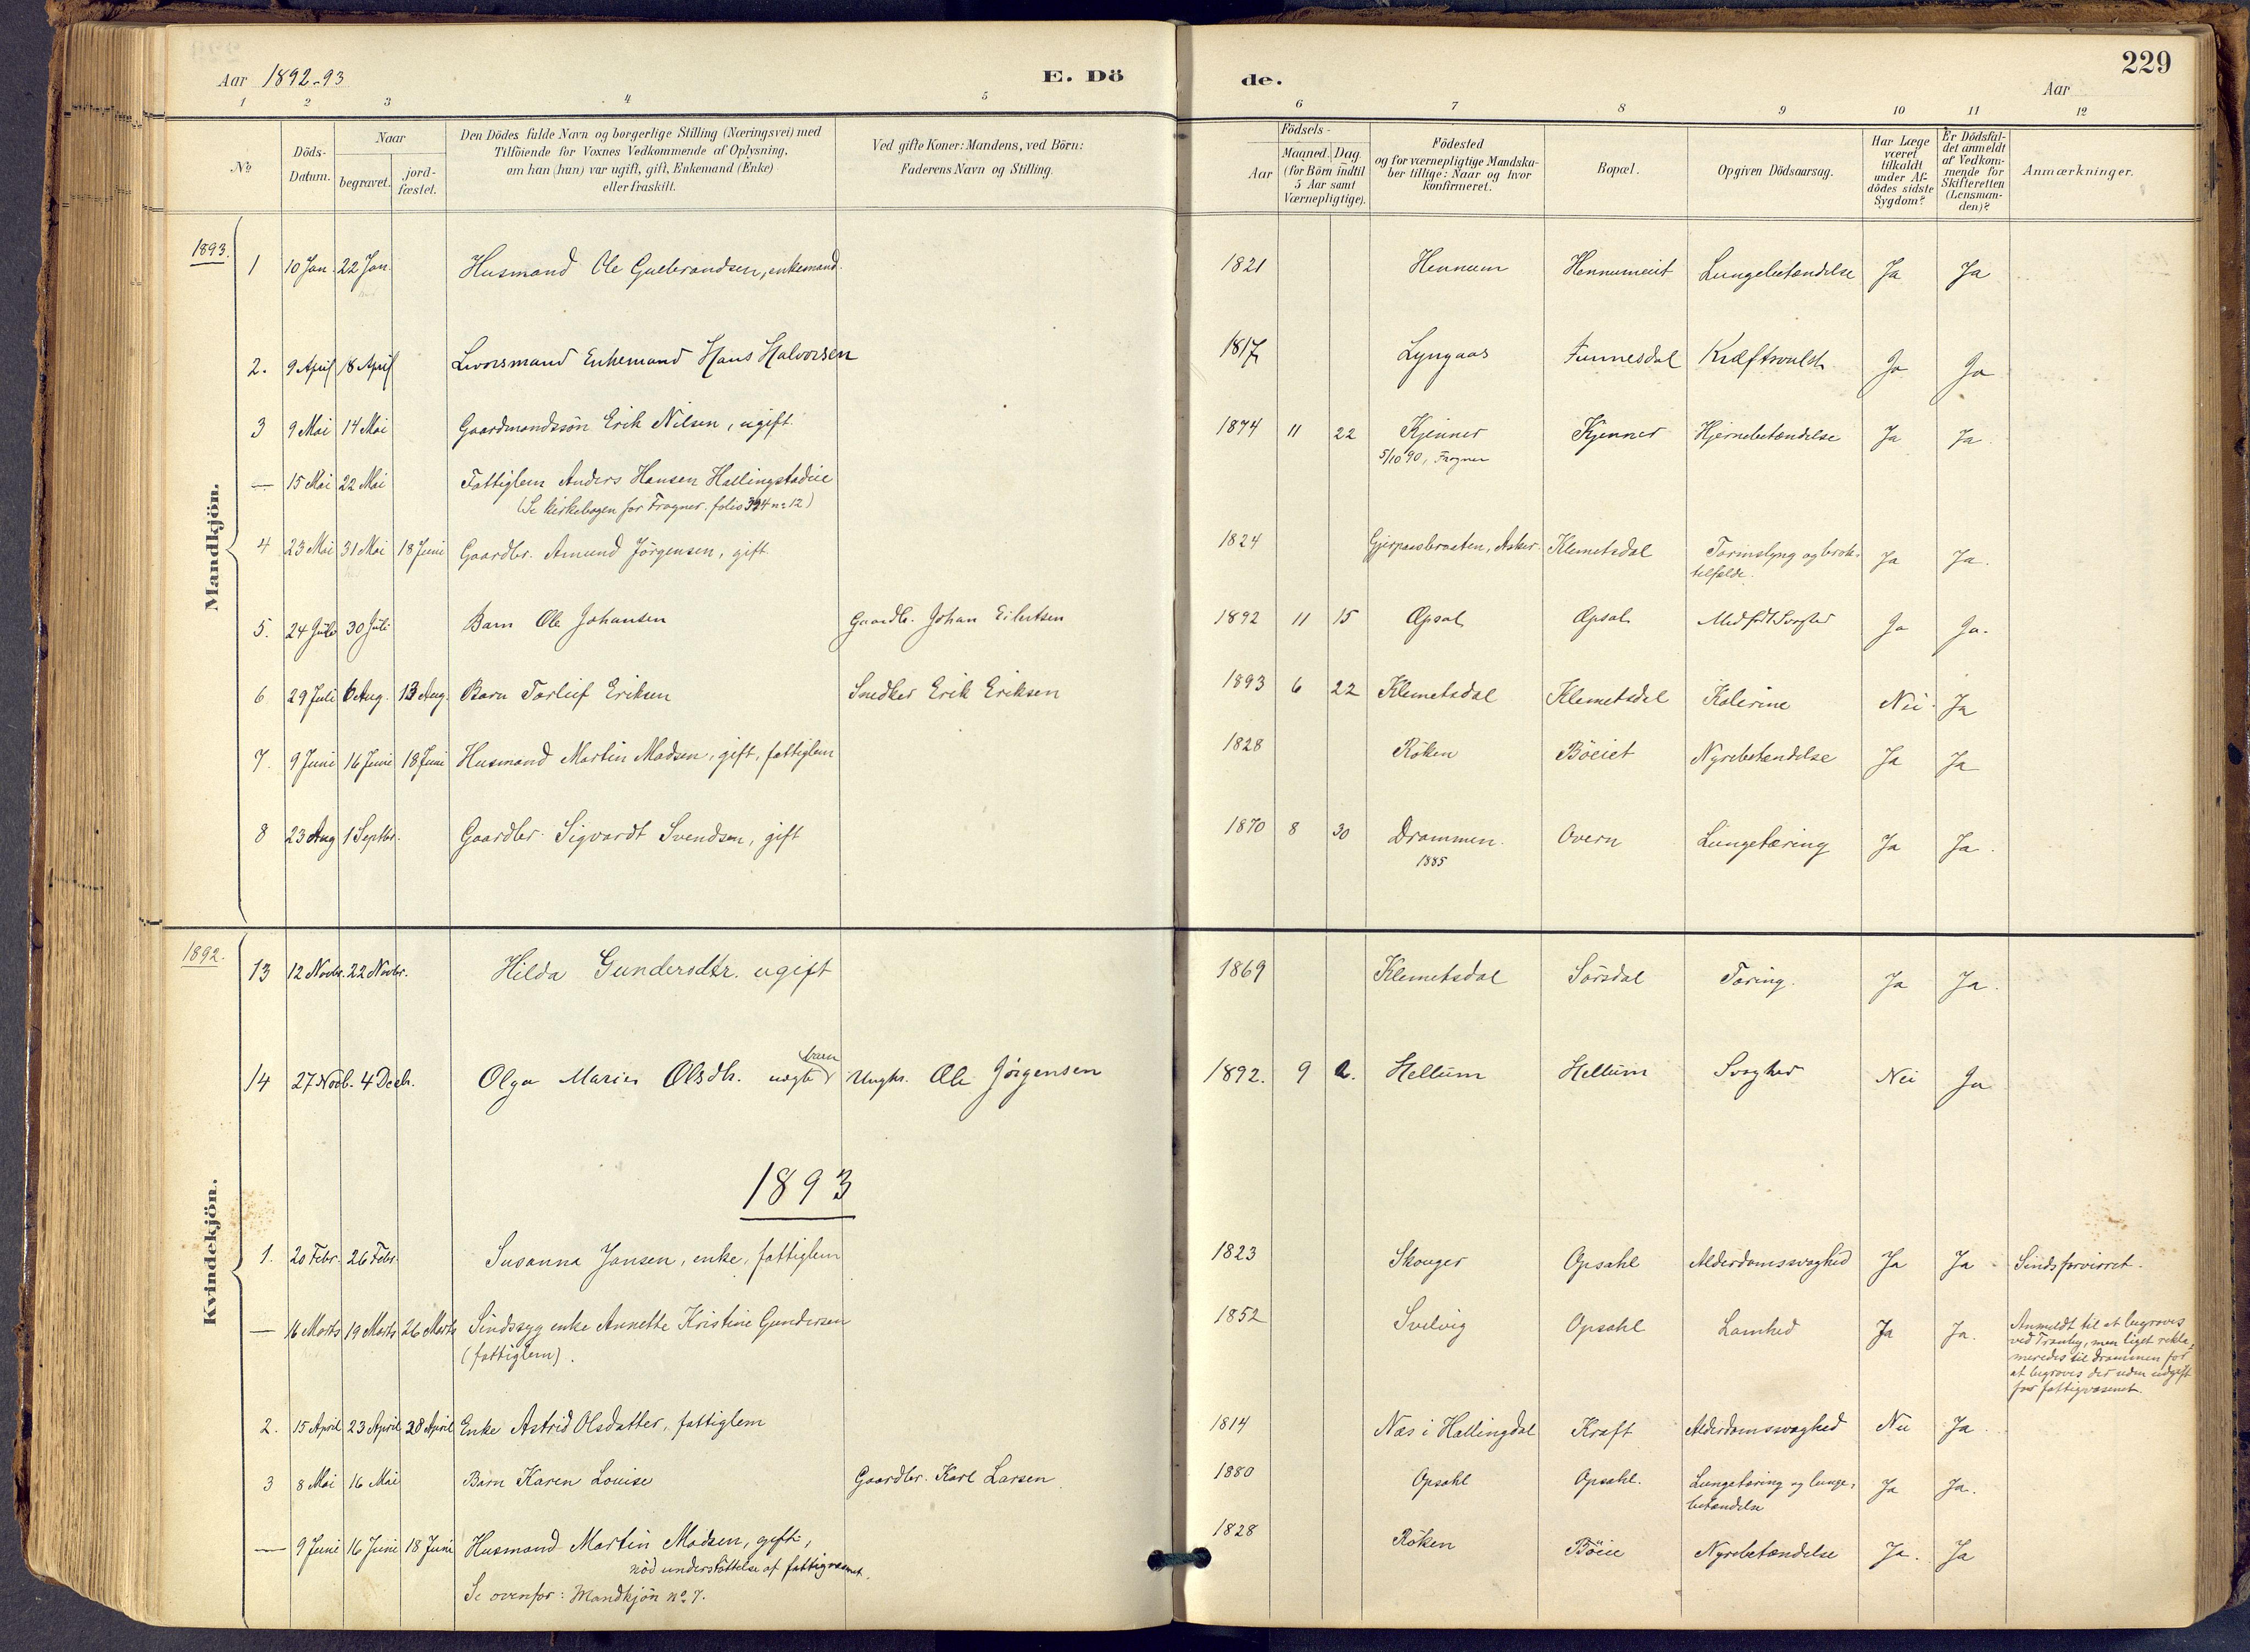 229
Aar 1892-93
E. Dö
de.
Aar
1 2 3 4 5 6 7 8 9 10 11 12
No
Döds-Datum.
Naar
begravet.
jord-fæstet.
Den Dödes fulde Navn og borgerlige Stilling (Næringsvei) med
Tilföiende for Voxnes Vedkommende af Oplysning,
om han (hun) var ugift, gift, Enkemand (Enke)
eller fraskilt.
Ved gifte Koner: Mandens, ved Börn:
Faderens Navn og Stilling.
Födsels-
Aar
Maaned. Dag.
(for Börn indtil
5 Aar samt
Værnepligtige).
Födested
og for værnepligtige Mandska-
ber tillige: Naar og hvor
konfirmeret.
Bopæl.
Opgiven Dödsaarsag.
Har Læge
været
tilkaldt
under Af-
dödes sidste
Sygdom?
Er Dödsfal-
det anmeldt
af Vedkom-
mende for
Skifteretten
(Lensman-
den)?
Anmærkninger.
Mandkjön.
1893.
1 10 Jan. 22 Jan. Husmand Ole Gulbrandsen, enkemand. 1821 Hennum Hennumeiet Lungebetændelse Ja Ja
2. 9 April 18 April Enkemand Hans Halvorsen 1817 Lyngaas Funnesdal Kræftsvulst Ja Ja
3 9 Mai 14 Mai Gaardmandssön Erik Nilsen, ugift. 1874 11 22 Kjenner Kjenner Hjernebetændelse Ja Ja
5/10 90, Frogner
— 15 Mai 22 Mai Fattiglem Anders Hansen Hallingstadeie
(Se kirkebogen for Frogner. folio 394 no 12)
4 23 Mai 31 Mai 18 Juni Gaardbr. Amund Jörgensen, gift 1824 Asker. Klemetsdal Tarmslyng og brok-
tilfælde. Ja Ja.
5. 24 Juli 30 Juli Barn Ole Johansen Gaardb. Johan Eilertsen 1892 11 15 Opsal Opsal Medfødt Svaghed Ja Ja.
6 29 Juli 6 Aug. 13 Aug. Barn Torleif Eriksen Snedker Erik Eriksen 1893 6 22 Klemetsdal Klemetsdal Kolerine Nei. Ja
7. 9 Juni 16 Juni 18 Juni Husmand Martin Madsen, gift, fattiglem 1828 Röken Böeiet Nyrebetændelse Ja Ja
8 23 Aug 1 Septbr. Gaardbr. Sigvardt Svendsen, gift 1870 8 30 Drammen. Overn Lungetæring Ja Ja.
1885
Kvindekjön.
1892.
13 12 Novbr. 22 Novbr. Hilda Gundersdtr. ugift 1869 Klemetsdal Sörsdal Tæring. Ja Ja.
14 27 Novb. 4 Decb. Olga Marie Olsdtr. barn Ungkr. Ole Jörgensen 1892. 9 2. Hellum Hellum Svaghed Nei Ja
1893
1. 20 Febr. 26 Febr. Susanna Jansen, enke, fattiglem 1823 Skouger Opsahl Alderdomssvaghed Ja Ja Sindsforvirret.
— 16 Marts 19 Marts 26 Marts Sindssyg enke Annette Kristine Gundersen 1852 Svelvig Opsahl Lamhed Ja Ja.
(fattiglem).
Anmeldt til at begraves
ved Tranby, men liget rekla-
meredes til Drammen for
at begraves der uden udgift
for fattigvæsenet.
2. 15 April 23 April 30 April Enke Astrid Olsdatter, fattiglem 1814 Næs i Hallingdal Kraft Alderdomssvaghed Nei Ja
3 8 Mai 16 Mai Barn Karen Louise Gaardbr. Karl Larsen 1880 Opsahl Opsahl. Lungetæring og lunge-
betændelse Ja Ja.
— 9 Juni 16 Juni 18 Juni Husmand Martin Madsen, gift, 1828 Röken Böeie Nyrebetændelse Ja. Ja
nöd understöttelse af fattigvæsenet.
Se ovenfor: Mandkjön no 7.